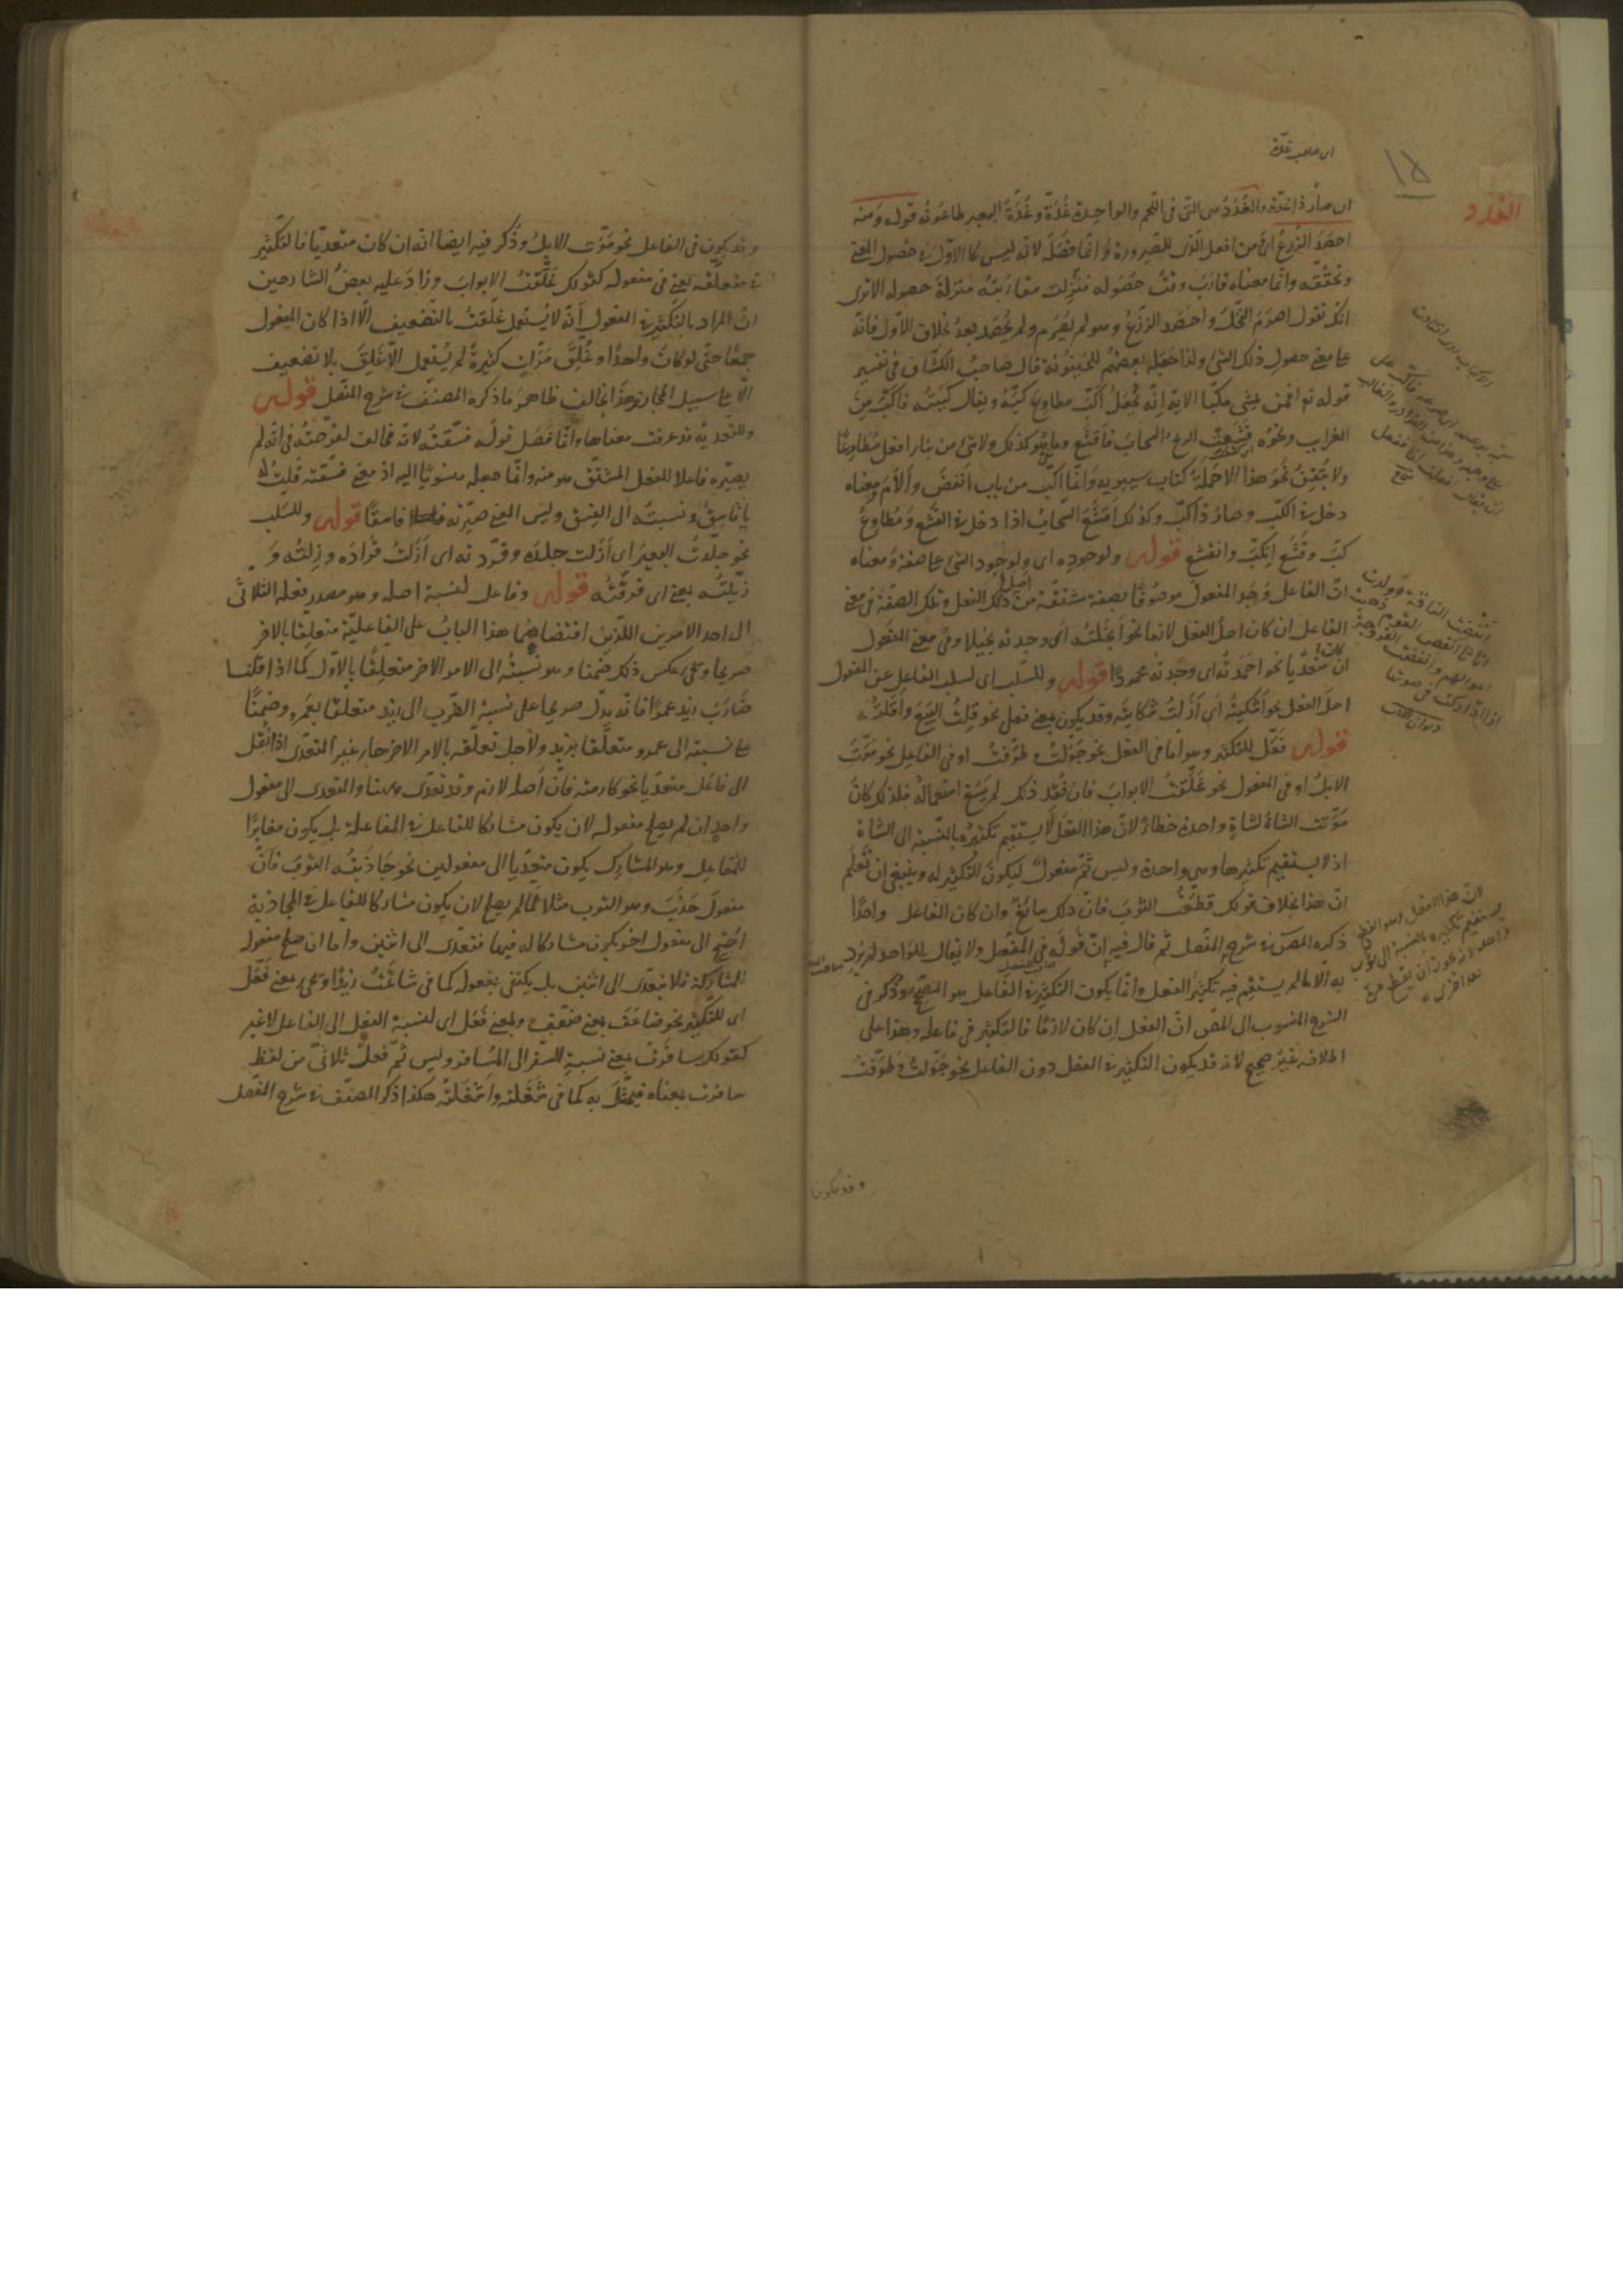 اى صار ذا غدّة والغُدَدُ هى التى فى اللّحم والواحدة غُدَدَة وغُدّةُ البعير طاعونُه قوله ومنه
احصَدَ الزرعُ اى ومن افعل الذى للصيرورة وانّما فصَلَه لانه ليس كالاوّل فى حصول المعنى
وتحقّقه وانّما معناه قارَبَ وقتُ حصوله فنُزّلت مقاربته منزلة حصوله الا ترى
انك تقول اصرَمَ النخلُ واحصَدَ الزرعُ وهو لم يُصرَم ولم يُحصَد بعدُ بخلاف الاوّل فانّه
على معنى حصول ذلك الشئ ولذا جعله بعضهم للحينونة قال صاحبُ الكشّاف فى تفسير
قوله تع افمن يمشى مكبّا الاية انّه يُجعَل اكبّ مطاوع كبّه ويقال كببته فاكبّ من
الغرايب ونحوُه قشعت الريح السحابَ فاقشع وما هو كذلك ولا شئ من بناء افعل مُطاوعًا
ولا يُتقِنُ نحوَ هذا الا حَمَلةُ كتاب سيبويه وانّما اكبّ من باب انفضَ والأمَ ومعناه
دخل فى الكبّ وصار ذا كبّ وكذلك اقشع السحابُ اذا دخل فى القشع ومُطاوعُ
كبّ وقشع انكبّ وانقشع قوله ولوجوده اى ولوجود الشئ على صفة ومعناه
انّ الفاعل وَجَد المفعول موصوفًا بصفة مشتقّة من اصل ذلك الفعل وتلك الصفة فى معنى
الفاعل ان كان اصلُ الفعل لازما نحو ابخلتُه اى وجدته بخيلا وفى معنى المفعول
ان كان متعدّيا نحو احمَدتُه اى وجدته محمودًا قوله وللسّلب اى لسلب الفاعل عن المفعول
اصلَ الفعل نحو اشكيتُه اى ازلتُ شكايته وقد يكون بمعنى فعل نحو قِلتُ البيعَ واقلتُه
قوله فعّل للتكثير وهو امّا فى الفعل نحو جوّلتُ وطوّفتُ او فى الفاعل نحو موّتت
الابلُ او فى المفعول نحو غلّقتُ الابوابَ فان فُقِد ذلك لم يَسُغ استعماله فلذلك كان
موّتت الشاةُ لشاةٍ واحدة خطاءً لانّ هذا الفعل لا يستقيم تكثيرُه بالنّسبة الى الشاة
اذ لا يستقيم تكثيرها وهى واحدة وليس ثَمّ مفعولٌ ليكونَ التكثير له وينبغى ان تعلم
انّ هذا بخلاف قولك قطّعتُ الثوبَ فانّ ذلك سائغٌ وان كان الفاعل واحدًا
ذكره المصَ فى شرح المفصّل ثم قال فيه انّ قوله فى المفصّل ولا يقال للواحد لم يُرِد
به الا ما لم يستقم فيه تكثيرُ الفعل وانّما يكون التكثير فى الفاعل هو الصحيح وذكر فى
الشرح المنسوب الى المصَ انّ الفعل ان كان لازمًا فالتكثير فى فاعله وهذا على
اطلاقه غيرُ صحيح لانه قد يكون التكثير فى الفعل دون الفاعل نحو جوّلتُ وطوّفتُ
وقد يكون
وقد يكون فى الفاعل نحو موّتت الابلُ وذُكر فيه ايضا انّه ان كان متعدّيا فالتكثير
فى متعلَّقه يعنى فى مفعوله كقولك غلّقتُ الابوابَ وزادَ عليه بعضُ الشارحين
انّ المراد بالتكثير فى المفعول أنّه لا يُستعمل غلّقتُ بالتّضعيف الّا اذا كان المفعول
جمعًا حتّى لو كان واحدًا وغُلِقَ مرّاتٍ كثيرةً لم يُستعمل الّا غلق بلا تضعيف
الّا على سبيل المجاز وهذا يخالف ظاهرَ ما ذكره المصنّف فى شرح المفصّل قوله
وللتعدية قد عرفت معناها وانّما فصَل قوله فسّقتُه لانّه مخالف لفرّحتُه فى انّه لم
يصيّره فاعلا للفعل المشتقّ هو منه وانّما جعله منسوبًا اليه اذ معنى فسّقته قلتُ له
يا فاسقُ ونسبتُه الى الفسق وليس المعنى صيّرته فاسقًا قوله وللسّلب
نحو جلّدتُ البعيرَ اى ازلت جلدَه وقرّدته اى ازلتُ قُرادَه وزِلتُه و
زيّلتُه بمعنى اى فرّقتُه قوله وفاعل لنسبة اصله وهو مصدر فعله الثلاثى
الى احد الامرين اللّذين اقتضاهما هذا البابُ على الفاعليّة متعلّقا بالاخر
صريحا ويجئ عكس ذلك ضمنا وهو نسبتُه الى الامر الاخر متعلّقًا بالاوّل كما اذا قلنا
ضارَبَ زيد عمرًا فانّه يدلّ صريحا على نسبة الضّرب الى زيد متعلّقا بعمرٍو وضمنًا
على نسبته الى عمرو متعلّقا بزيد ولأجل تعلّقه بالامر الاخر جاء غير المتعدّى اذا نُقِل
الى فاعَل متعدّيا نحو كارمته فانّ اصله لازم وقد تعدّى ههنا والمتعدى الى مفعول
واحدٍ ان لم يصلح مفعوله لان يكون مشاركا للفاعل فى المفاعلة بل يكون مغايرًا
للمفاعِل وهو المشارِك يكون متعدّيا الى مفعولين نحو جاذبتُه الثوبَ فانّ
مفعولَ جذَبَ وهو الثوب مثلا لمّا لم يصلح لان يكون مشاركا للفاعل فى المجاذبة
احتيج الى مفعول اخر يكون مشاركا له فيها فتعدّى الى اثنين وامّا ان صلح مفعوله
للمشاركة فلا يتعدّى الى اثنين بل يكتفى بمفعوله كما فى شاتمتُ زيدًا ويجئ بمعنى فعّل
اى للتكثير نحو ضاعَفَ بمعنى ضعّف وبمعنى فعَل اى لنسبة الفعل الى الفاعل لا غير
كقولك سافرتُ بمعنى نسبة السّفر الى المسافر وليس ثَمّ فعلٌ ثلاثىّ من لفظ
سافرت بمعناه فيمثَّل به كما فى شغَلته واشغَلتُه هكذا ذكر المصنّف فى شرح المفصّل